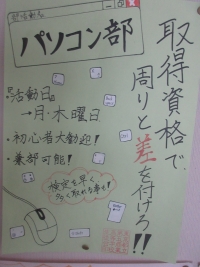 パソコン部
取得資格で
周りと差を付けろ!!
・活動日
→月・木曜日
・初心者大歓迎!
・兼部可能!
検定を早く
多く取れる事も!